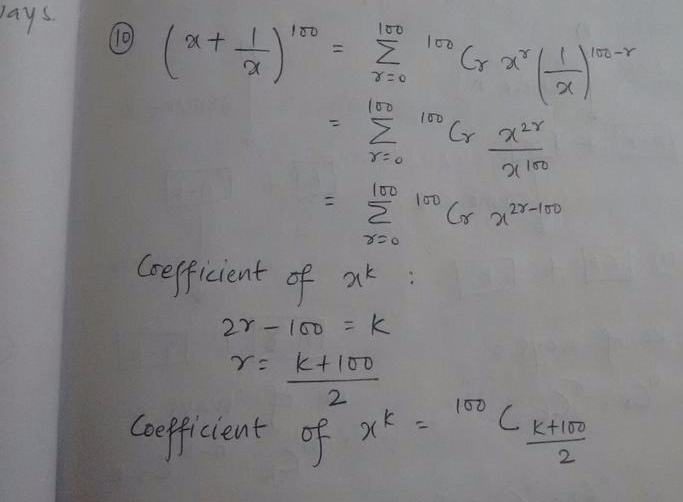 ways.
⑩ (x + 1/x)^100 = Σ_{r=0}^{100} ^100C_r x^r (1/x)^{100-r}
= Σ_{r=0}^{100} ^100C_r x^{2r}/x^{100}
= Σ_{r=0}^{100} ^100C_r x^{2r-100}
Coefficient of x^k :
2r - 100 = k
r = (k+100)/2
Coefficient of x^k = ^100C_{(k+100)/2}